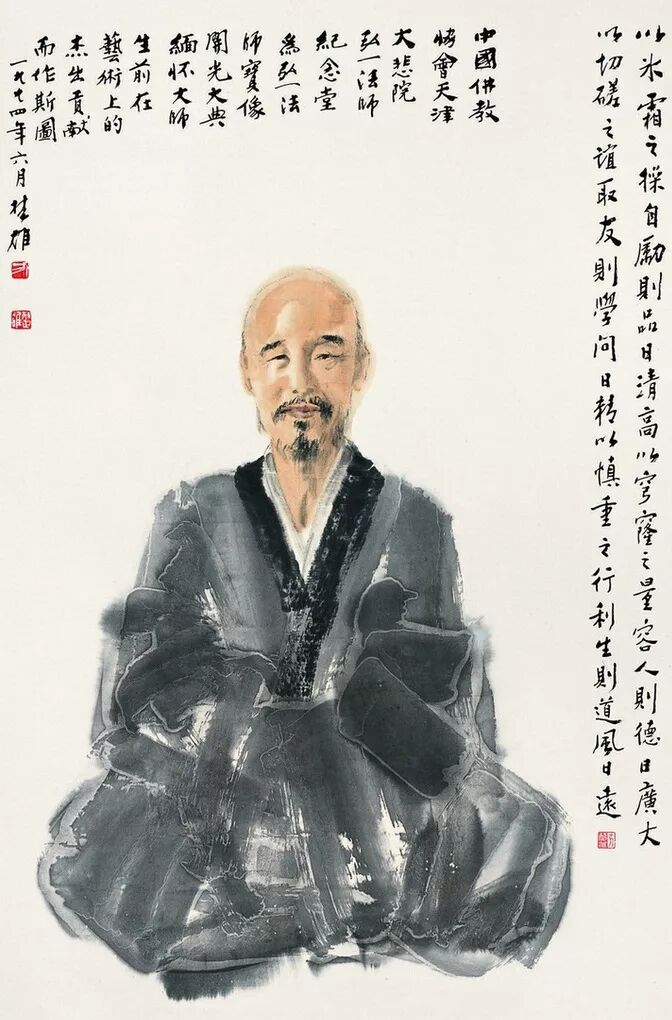 以氷霜之操自勵則品日清高以穹窿之量容人則德日廣大
以切磋之誼取友則學問日精以慎重之行利生則道風日遠
中國佛教
協會天津
大悲院
弘一法師
紀念堂
爲弘一法
師寶像
開光大典
緬懷大師
生前在
藝術上的
杰出貢献
而作斯圖
一九九四年六月